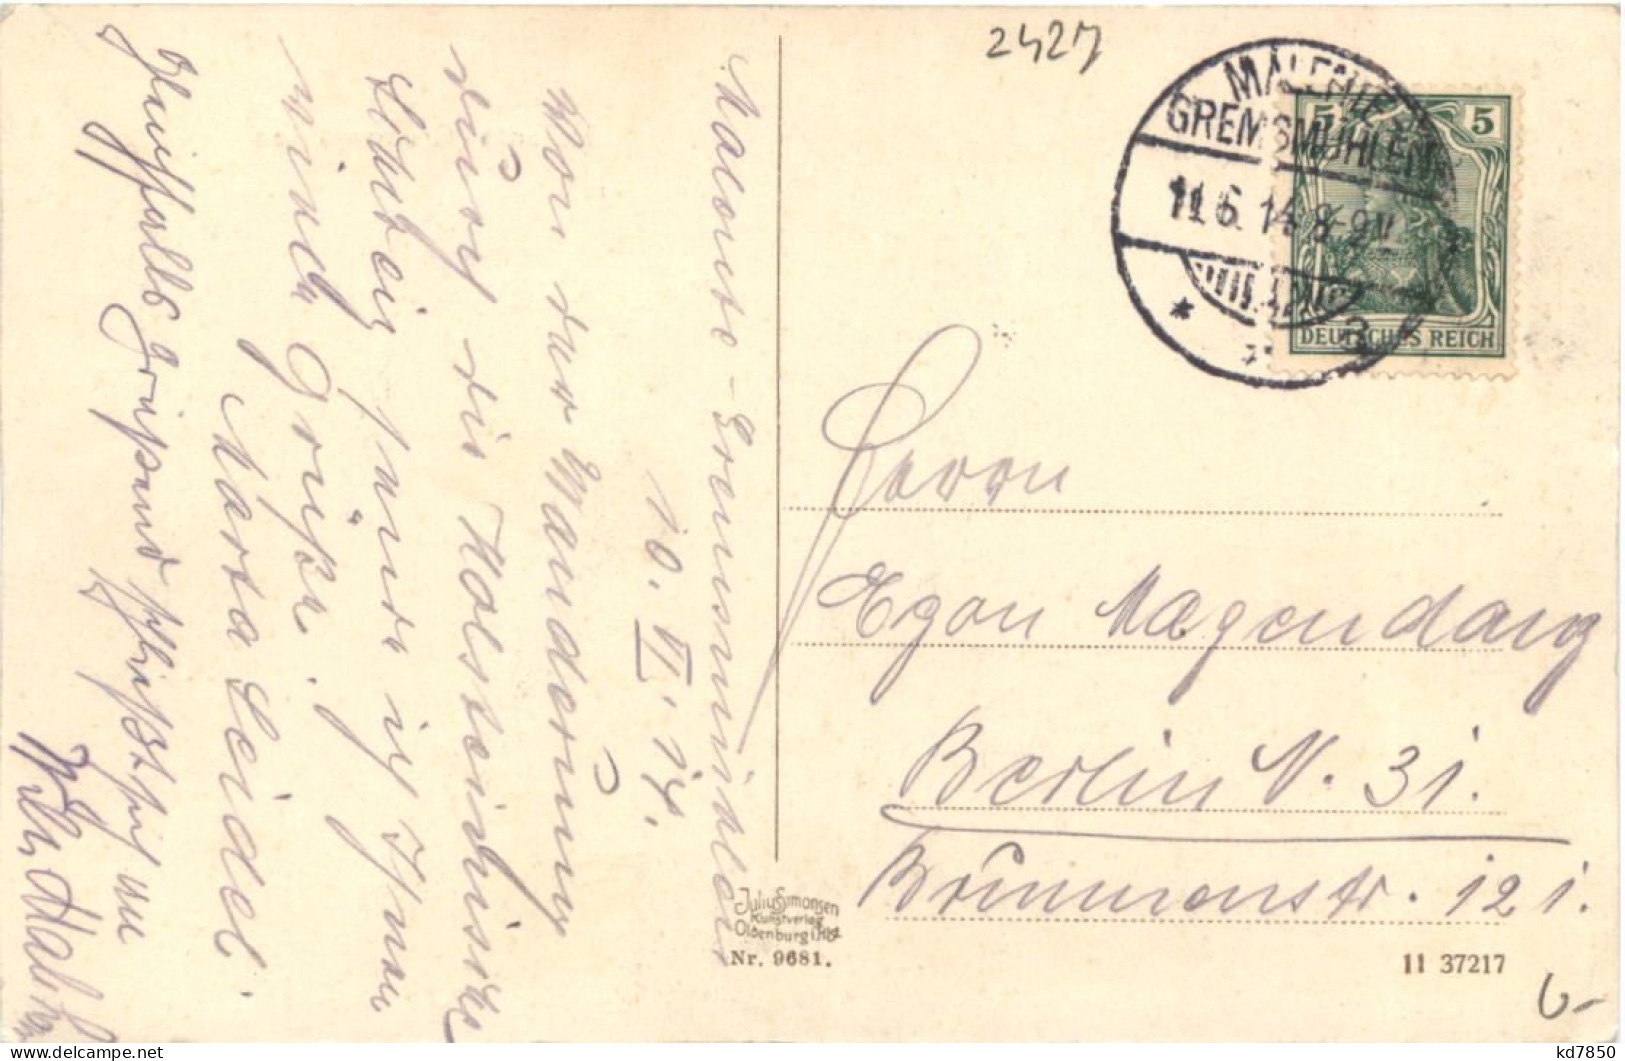 2427
MALENTE
GREMSMÜHLEN
11.6.14.8-9N
5 5
DEUTSCHES REICH
Malente-Gremsmühlen
10. VI. 14.
Von der Wanderung
durch die Holsteinische
Schweiz sende ich Ihnen
viele Grüße.
Marta Seidel.
Herrn
Egon Magendanz
Berlin N. 31.
Brunnenstr. 121.
Julius Simonsen
Kunstverlag
Oldenburg i/Hol.
Nr. 9681.
11 37217
6-
kd7850